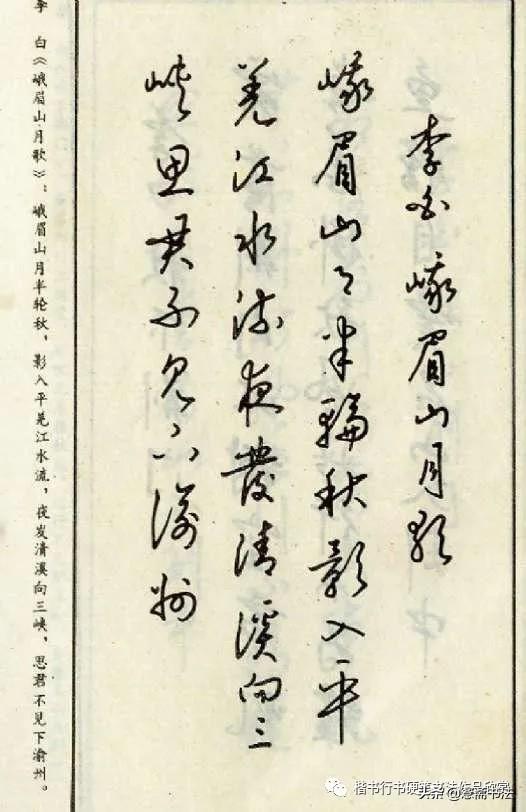 李白峨眉山月歌
峨眉山月半輪秋影入平
羌江水流夜發清溪向三
峡思君不见下渝州
李 白《峨眉山月歌》:峨眉山月半轮秋，影入平羌江水流，夜发清溪向三峡，思君不见下渝州。
楷书行书硬笔书法作品欣赏
头条@急需书法